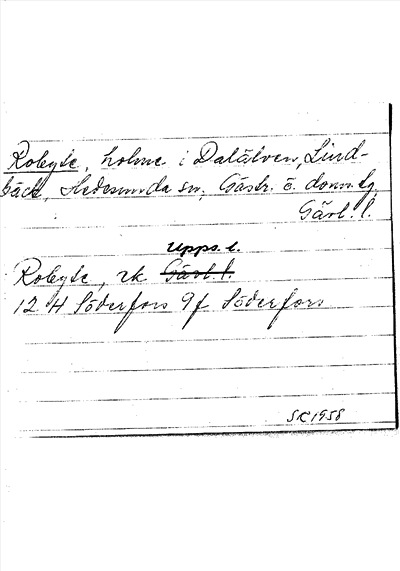 Robyte, holme i Dalälven, Lind-
bäck, Hedesunda sn, Gästr. ö. doms.
Gävl. l.
Upps. l.
Robyte, rk Gävl. l.
12 H Söderfors 9f Söderfors
SK 1958